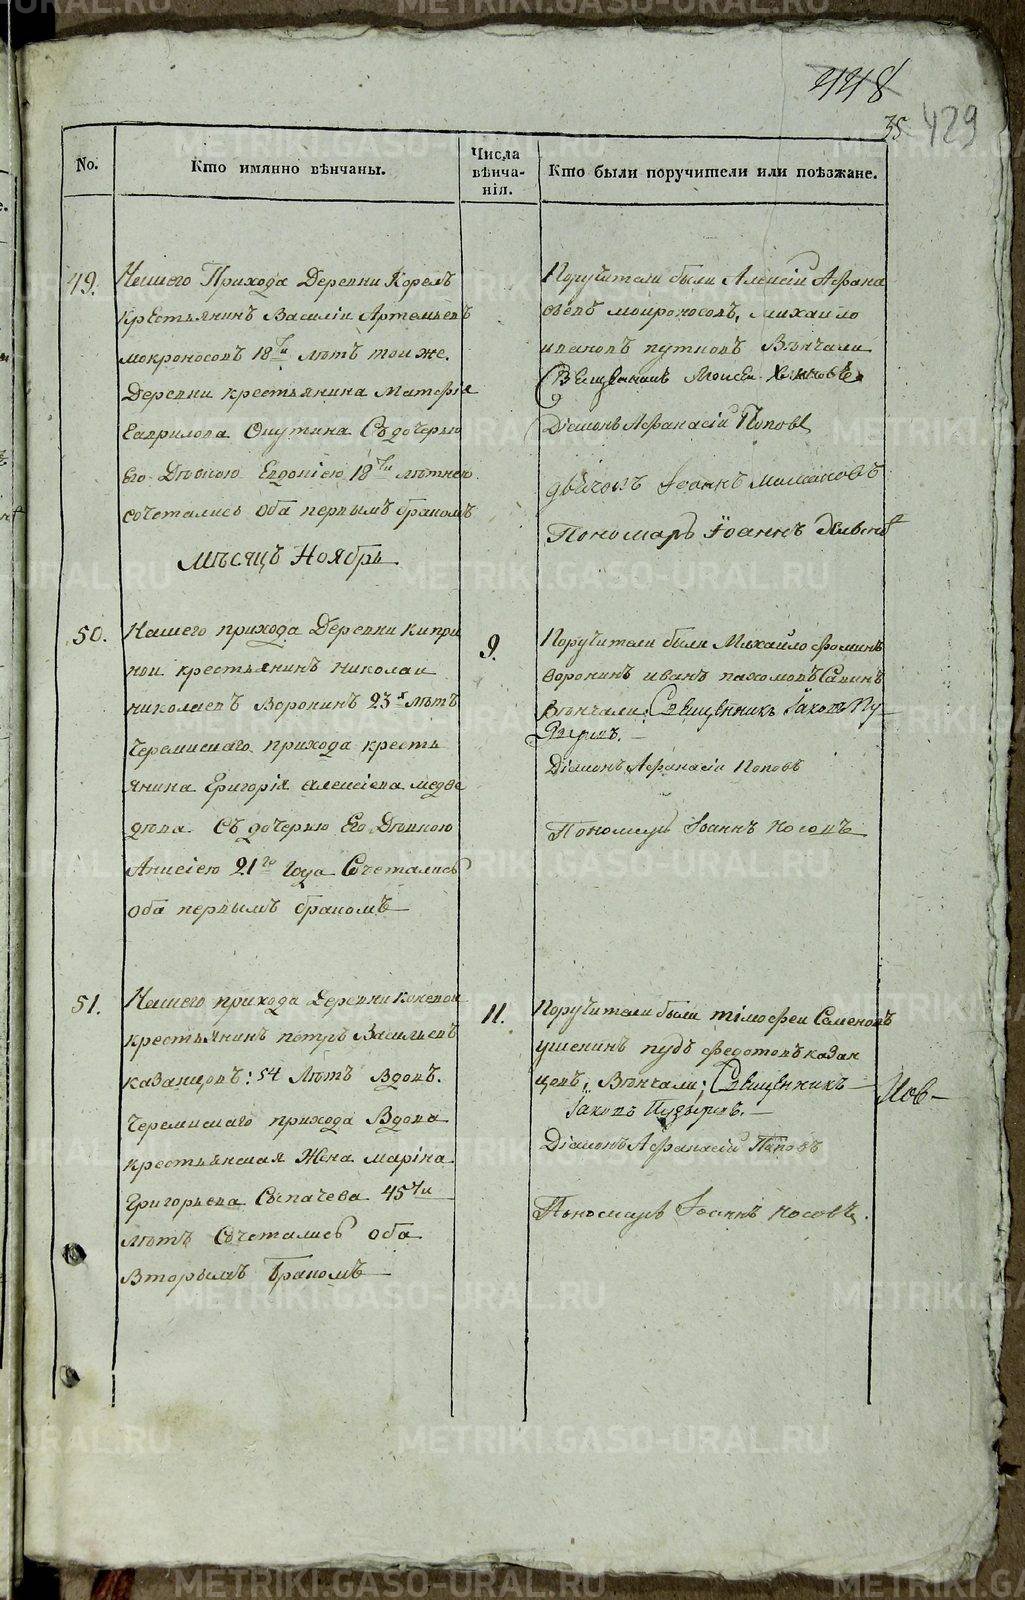 448
35 429
No.
Кто имянно вѣнчаны.
Числа вѣнча-нія.
Кто были поручители или поѣзжане.
49.
Нашего Прихода Деревни Корелъ
крестьянинъ Василіи Артемьевъ
мокроносовъ 18ти лѣтъ тои же.
Деревни крестьянина Матфѣя
Гаврилова Опутина Съ дочерью
Его Дѣвкою Евдокіею 18ти лѣтнею
сочетались оба первымъ бракомъ
Поручители были Алексіи Афана
сьевъ мокроносовъ, михаило
ивановъ путковъ Вѣнчали
Священникъ Моисеи
Діаконъ Афанасіи Поповъ
дьячокъ Іоаннъ
Пономарь Іоаннъ
Мѣсяцъ Ноябрь
50.
Нашего прихода Деревни Кипри
нои крестьянинъ николаи
николаевъ Воронинъ 23х лѣтъ
Черемискаго прихода кресть
янина Григорія алексіева медве
дева. Съ дочерью Его Дѣвкою
Анисіею 21го Года Сочетались
оба первымъ бракомъ
9.
Поручители были Михайло фоминъ
воронинъ иванъ пахомовъ Савинъ
Вѣнчали: Священникъ Іаковъ Пу
зыревъ.
Діаконъ Афанасіи Поповъ
Пономарь Іоаннъ Носовъ
51.
Нашего прихода Деревни Коневои
крестьянинъ петръ Васильевъ
казанцовъ: 54 Лѣтъ Вдовъ.
Черемискаго прихода Вдова
крестьянская Жена маріна
Григорьева Сыпачева 45ти
лѣтъ Сочетались оба
Вторымъ Бракомъ
11.
Поручители были тімофеи Саменовъ
ушенинъ федотовъ казан
цовъ, Вѣнчали; Священникъ
Іаковъ Пузыревъ.
Діаконъ Афанасіи Поповъ
Пономарь Іоаннъ Носовъ.
Нов-
METRIKI.GASO-URAL.RU